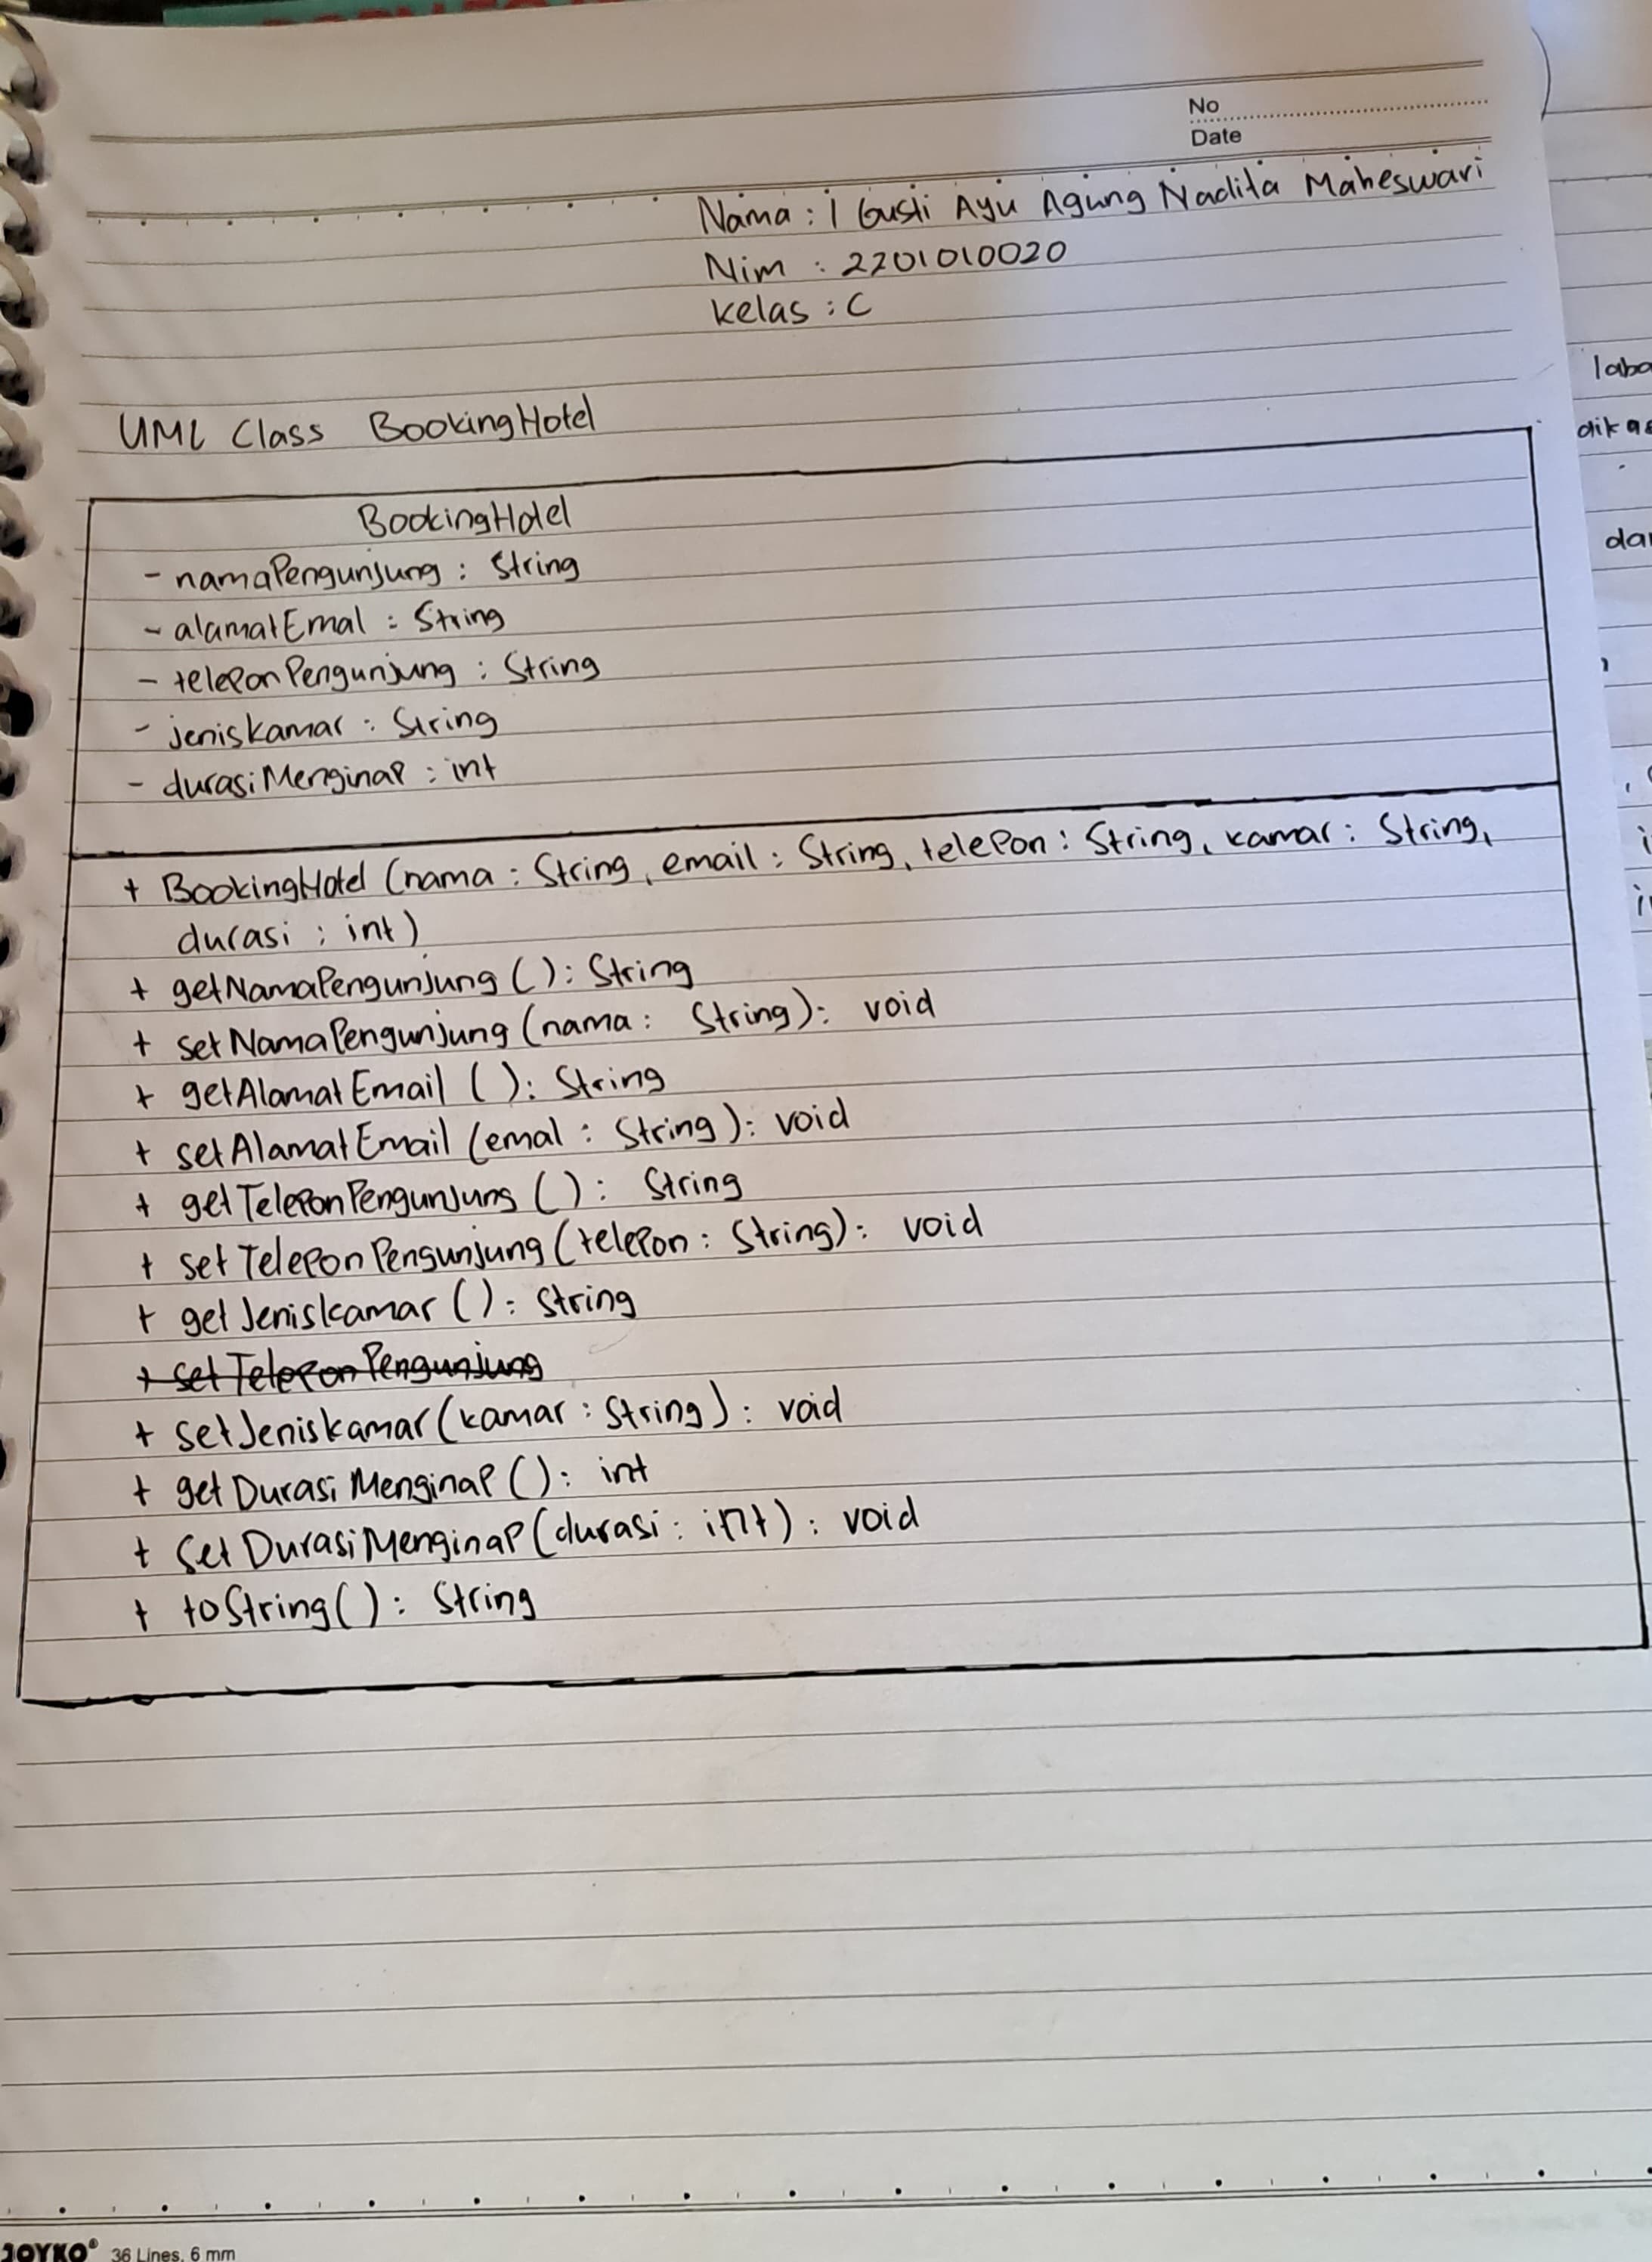 No
Date
Nama : I Gusti Ayu Agung Nadita Maheswari
Nim : 2201010020
Kelas : C
UML Class BookingHotel
BookingHotel
- namaPengunjung : String
- alamatEmal : String
- teleponPengunjung : String
- jeniskamar : String
- durasiMenginap : int
+ BookingHotel (nama : String, email : String, telepon : String, kamar : String,
durasi : int)
+ getNamaPengunjung () : String
+ setNamaPengunjung (nama : String) : void
+ getAlamatEmail () : String
+ setAlamatEmail (emal : String) : void
+ getTeleponPengunjung () : String
+ setTeleponPengunjung (telepon : String) : void
+ getJeniskamar () : String
+ setTeleponPengunjung
+ setJeniskamar (kamar : String) : void
+ getDurasiMenginap () : int
+ setDurasiMenginap (durasi : int) : void
+ toString () : String
laba
dikas
dar
JOYKO® 36 Lines, 6 mm